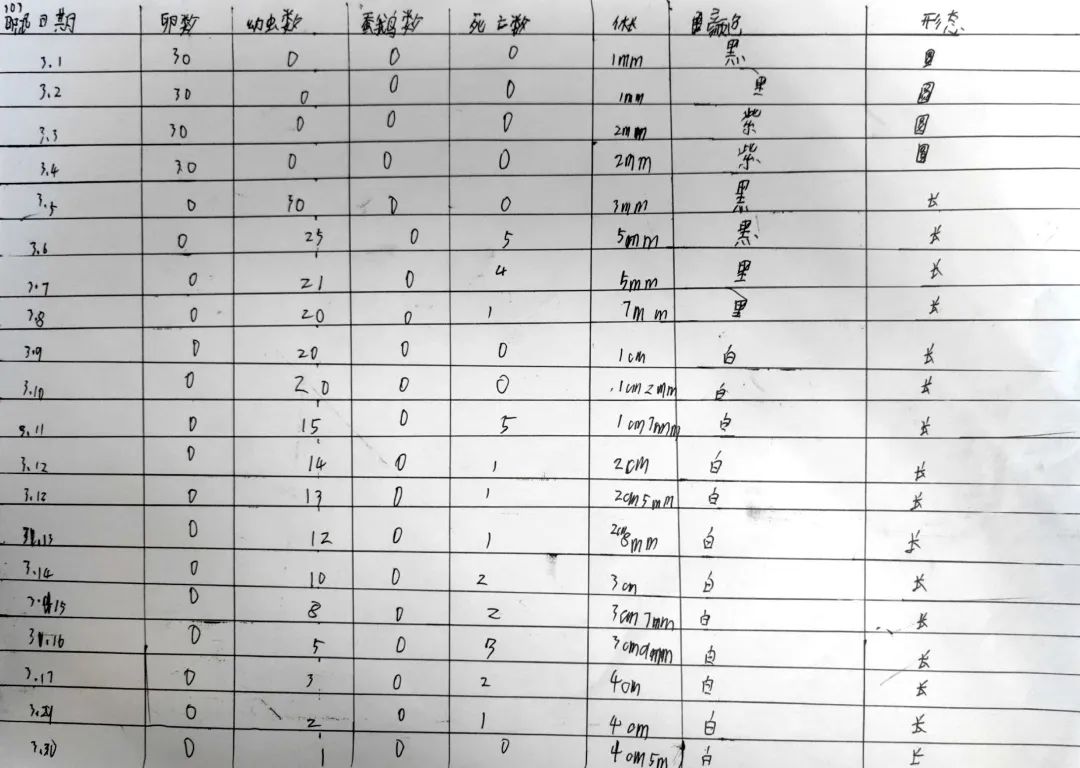 107
日期 卵数 幼虫数 蚕蛾数 死亡数 体长 颜色 形态
3.1 30 0 0 0 1mm 黑 圆
3.2 30 0 0 0 1mm 黑 圆
3.3 30 0 0 0 2mm 紫 圆
3.4 30 0 0 0 2mm 紫 圆
3.5 0 30 0 0 3mm 黑 长
3.6 0 25 0 5 5mm 黑 长
3.7 0 21 0 4 5mm 黑 长
3.8 0 20 0 1 7mm 黑 长
3.9 0 20 0 0 1cm 白 长
3.10 0 20 0 0 1cm2mm 白 长
3.11 0 15 0 5 1cm7mm 白 长
3.12 0 14 0 1 2cm 白 长
3.12 0 13 0 1 2cm5mm 白 长
3.13 0 12 0 1 2cm8mm 白 长
3.14 0 10 0 2 3cm 白 长
3.15 0 8 0 2 3cm7mm 白 长
3.16 0 5 0 3 3cm9mm 白 长
3.17 0 3 0 2 4cm 白 长
0 2 0 1 4cm 白 长
3.30 0 1 0 0 4cm5m 白 长